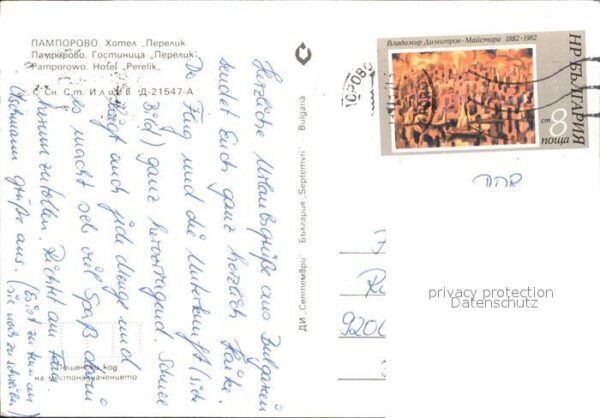 ПАМПОРОВО. Хотел „Перелик
Пампорово. Гостиница „Перелик"
Pamporowo. Hotel „Perelik"
Сн. Ст. Илиев Д-21547-А
Herzliche Urlaubsgrüße aus Bulgarien
sendet Euch ganz herzlich Heike.
Der Flug und die Unterkunft (sieh
Bild) ganz hervorragend. Schnee
liegt auch jede Menge und
es macht sehr viel Spaß darin
herumzutollen. Richtet an Fam.
grüße aus. (Bitte
ДИ „Септември" България „Septemvri" Bulgaria
Пощенски код
на местоназначението
Владимир Димитров-Майстора 1882-1982
НР БЪЛГАРИЯ
ст 8
поща
ПОРОВО
DDR
920
privacy protection
Datenschutz